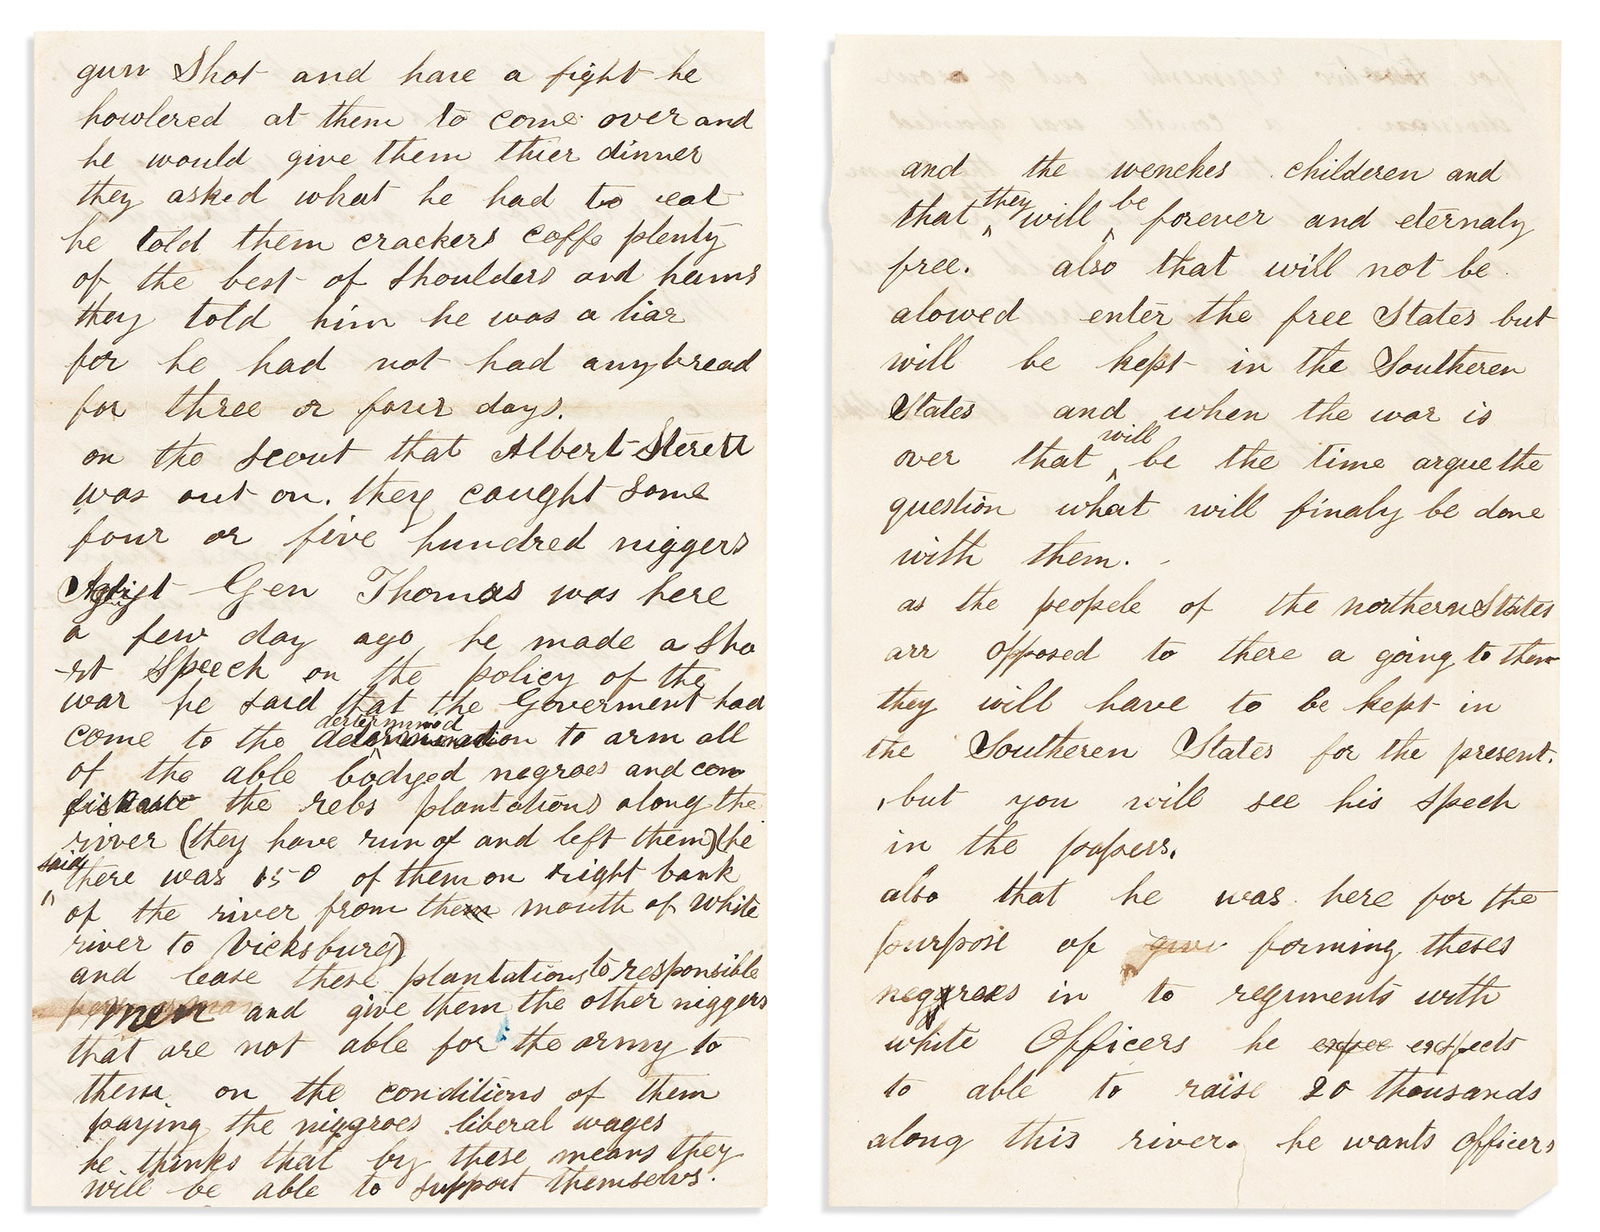 gun Shot and have a fight he
howlered at them to come over and
he would give them thier dinner
they asked what he had to eat
he told them crackers coffe plenty
of the best of Shoulders and hams
they told him he was a liar
for he had not had any bread
for three or four days.
on the scout that Albert Sterett
was out on. they caught some
four or five hundred niggers
Gen Thomas was here
a few day ago he made a Sho
-rt Speech on the policy of the
war he said that the Goverment had
come to the determined to arm all
of the able bodyed negroes and con
fiskate the rebs plantations along the
river (they have run of and left them) (he
said there was 150 of them on right bank
of the river from the mouth of White
river to Vicksburg)
and lease these plantations to responsible
men and give them the other niggers
that are not able for the army to
them on the conditions of them
paying the niggroes liberal wages
he thinks that by these means they
will be able to support themselvs.
and the wenches childeren and
that they will be forever and eternaly
free. also that will not be
alowed enter the free States but
will be kept in the Southeren
States and when the war is
over that will be the time argue the
question what will finaly be done
with them. -
as the peopele of the northern States
arr opposed to there a going to them
they will have to be kept in
the Southeren States for the present.
but you will see his Speech
in the papers.
also that he was here for the
purpose of forming theses
neggroes in to regiments with
white Officers he expects
to able to raise 20 thousands
along this river. he wants officers